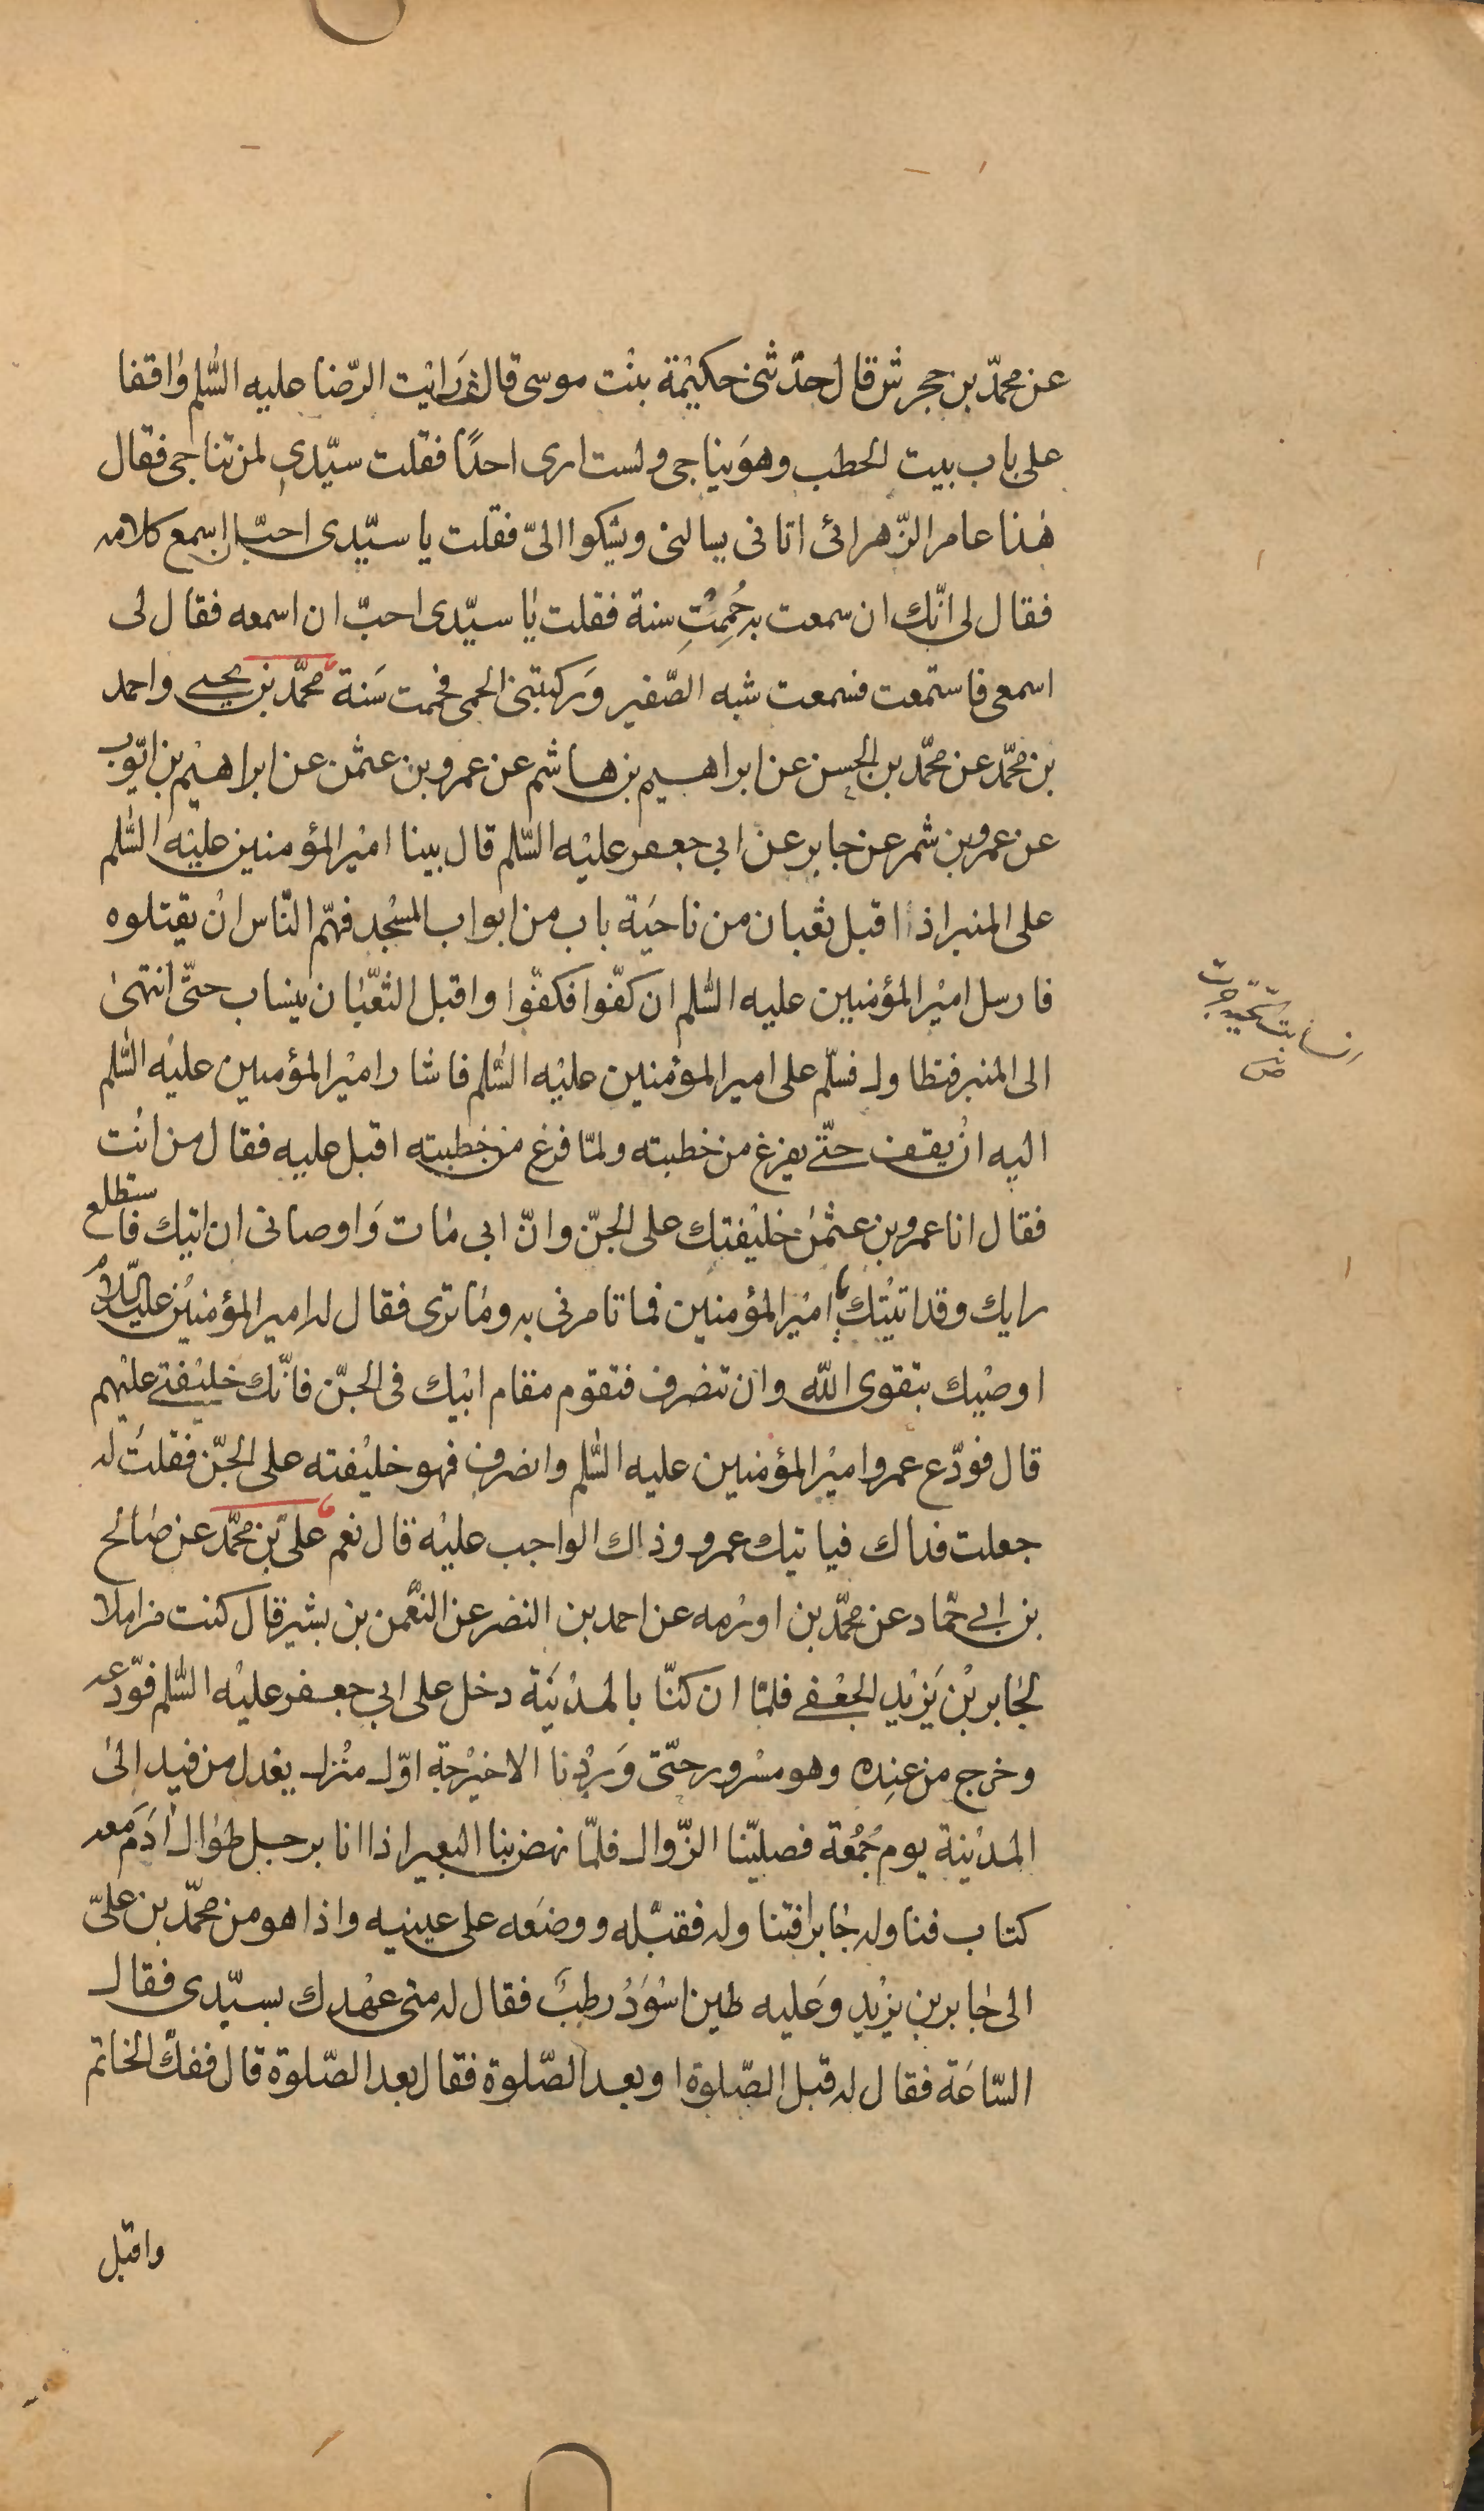 عن محمّد بن حجرش قال حدّثتنى حكيمة بنت موسى قالت رايت الرّضا عليه السّلم واقفا
على باب بيت الحطب وهو يناجى ولست ارى احدًا فقلت سيّدى لمن تناجى فقال
هذا عامر الزّهرائى اتانى يسالنى ويشكوا الىّ فقلت يا سيّدى احبّ ان اسمع كلامه
فقال لى انّك ان سمعت به حُمِمْتِ سنة فقلت يا سيّدى احبّ ان اسمعه فقال لى
اسمعى فاستمعت فسمعت شبه الصّفير وركبتنى الحمى فحممت سنة محمّد بن يحيى واحمد
بن محمّد عن محمّد بن الحسن عن ابراهيم بن هاشم عن عمرو بن عثمن عن ابراهيم بن ايّوب
عن عمرو بن شمر عن جابر عن ابي جعفر عليه السّلم قال بينا امير المؤمنين عليه السّلم
على المنبر اذ اقبل ثعبان من ناحية باب من ابواب المسجد فهمّ النّاس ان يقتلوه
فارسل امير المؤمنين عليه السّلم ان كفّوا فكفّوا واقبل الثّعبان ينساب حتّى انتهى
الى المنبر فتطاول فسلّم على امير المؤمنين عليه السّلم فاشار امير المؤمنين عليه السّلم
اليه ان يقف حتّى يفرغ من خطبته ولمّا فرغ من خطبته اقبل عليه فقال من انت
فقال انا عمرو بن عثمن خليفتك على الجنّ وانّ ابى مات واوصانى ان اتيك فاستطلع
رايك وقد اتيتك يا امير المؤمنين فما تامرنى به وما ترى فقال له امير المؤمنين عليه السّلام
اوصيك بتقوى اللّه وان تنصرف فتقوم مقام ابيك فى الجنّ فانّك خليفتى عليهم
قال فودّع عمرو امير المؤمنين عليه السّلم وانصرف فهو خليفته على الجنّ فقلت له
جعلت فداك فياتيك عمرو وذاك الواجب عليه قال نعم علىّ بن محمّد عن صالح
بن ابى حمّاد عن محمّد بن اورمه عن احمد بن النضر عن النّعمن بن بشير قال كنت مزاملا
لجابر بن يزيد الجعفى فلمّا ان كنّا بالمدينة دخل على ابي جعفر عليه السّلم فودّعه
وخرج من عنده وهو مسرور حتّى وردنا الاخيرجة اوّل منزل يعدل من فيد الى
المدينة يوم جمعة فصلّينا الزّوال فلمّا نهض بنا البعير اذا انا برجل طوال ادم معه
كتاب فناوله جابرا فتناوله فقبّله ووضعه على عينيه واذا هو من محمّد بن علىّ
الى جابر بن يزيد وعليه طين اسود رطب فقال له متى عهدك بسيّدى فقال
السّاعة فقال له قبل الصّلوة او بعد الصّلوة فقال بعد الصّلوة قال ففكّ الخاتم
واقبل